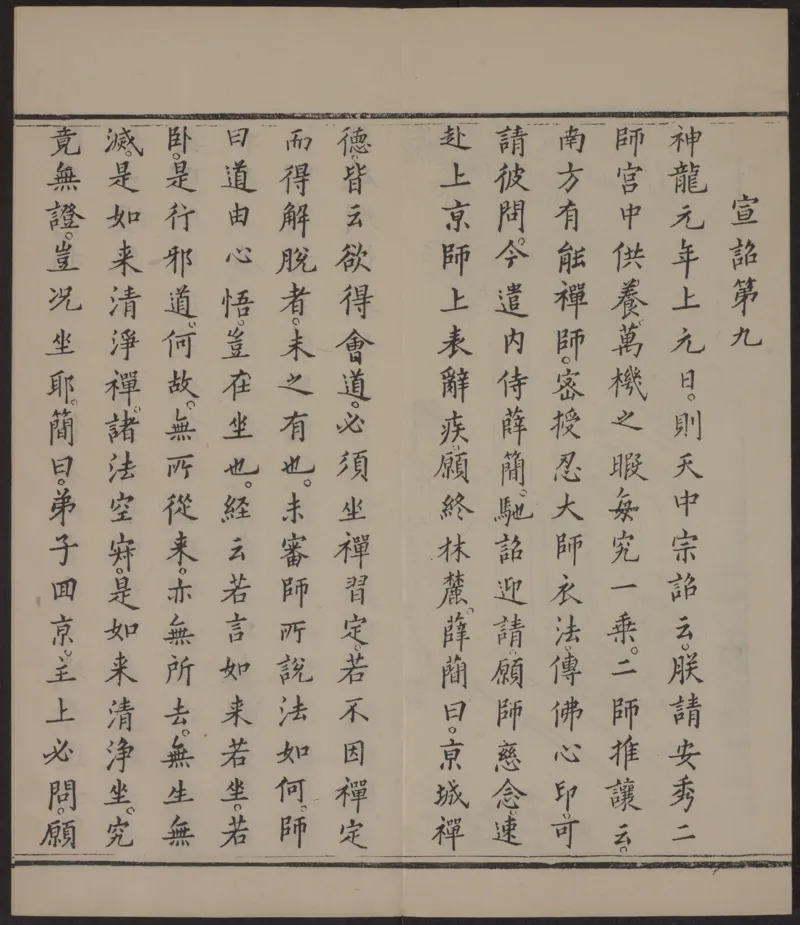 宣詔第九
神龍元年上元日。則天中宗詔云。朕請安秀二
師宮中供養。萬機之暇每究一乗。二師推讓云。
南方有能禪師。密授忍大師衣法。傳佛心印。可
請彼問。今遣内侍薛簡。馳詔迎請。願師慈念。速
赴上京師上表辭疾。願終林麓。薛簡曰。京城禪
德。皆云欲得會道。必須坐禪習定。若不因禪定
而得解脫者。未之有也。未審師所說法如何。師
曰道由心悟。豈在坐也。経云若言如来若坐。若
卧。是行邪道。何故。無所從来。亦無所去。無生無
滅。是如来清淨禪。諸法空寂。是如来清淨坐。究
竟無證。豈況坐耶。簡曰。弟子回京。主上必問。願